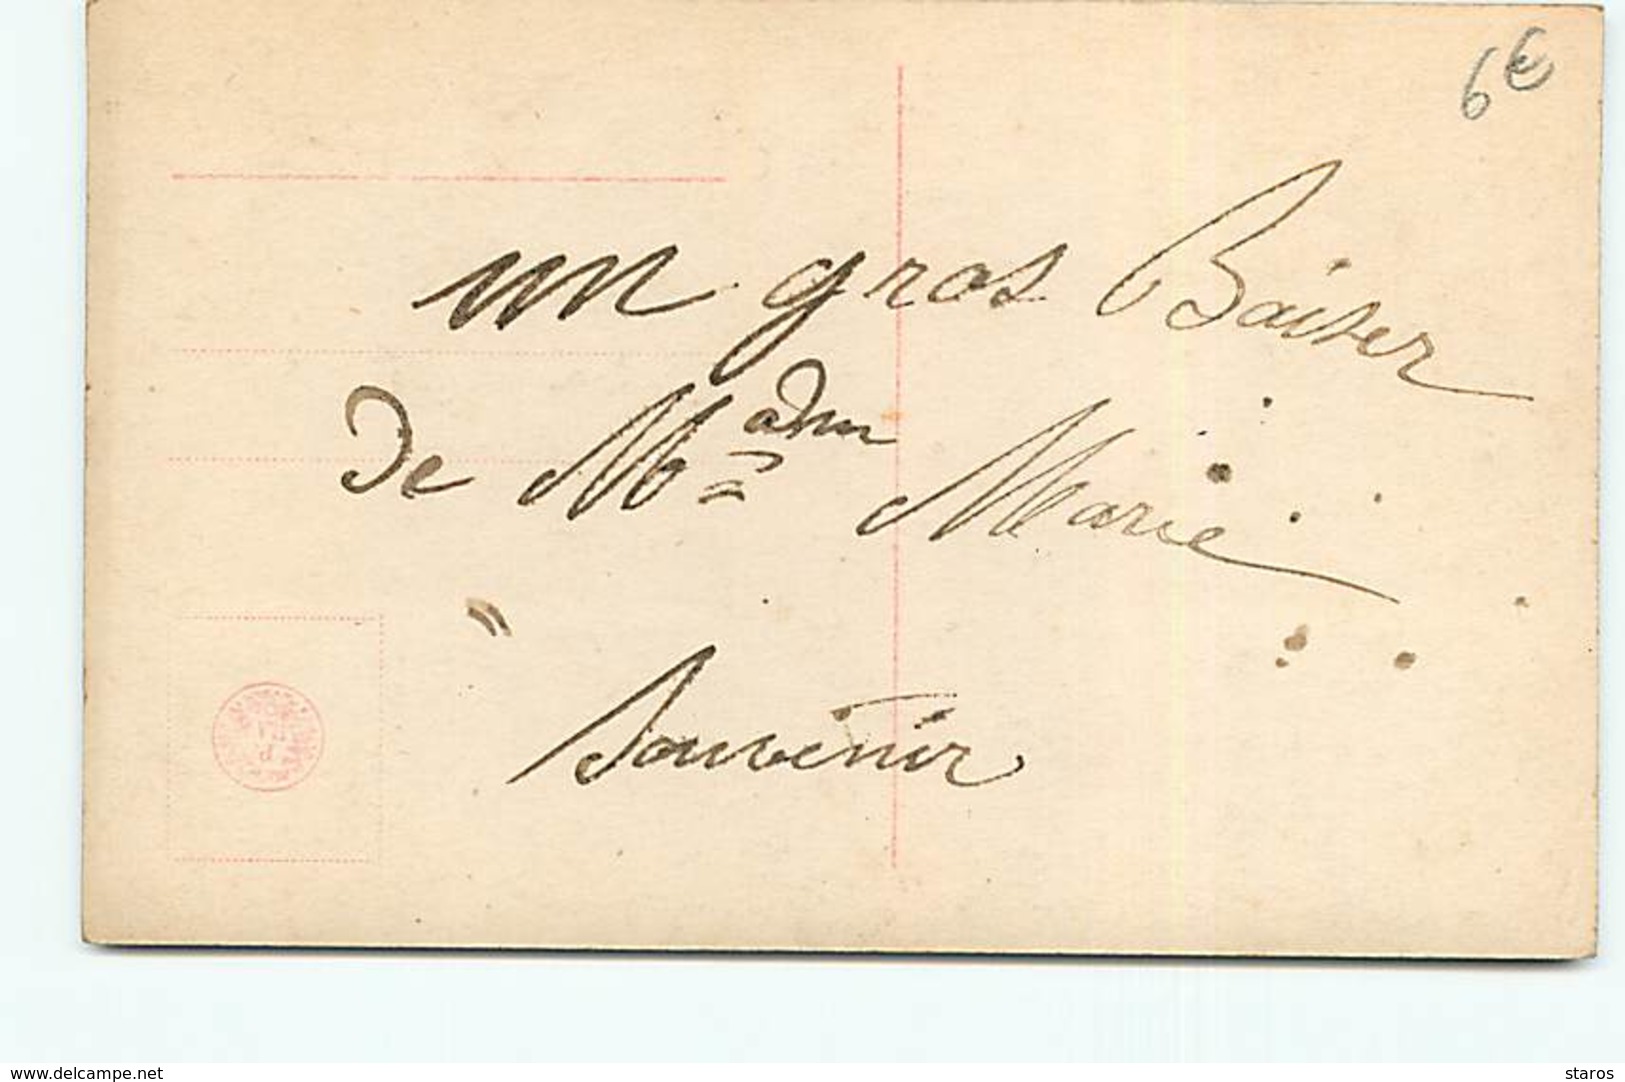 6€
un gros Baiser
De Madm Marie
Souvenir
www.delcampe.net
staros